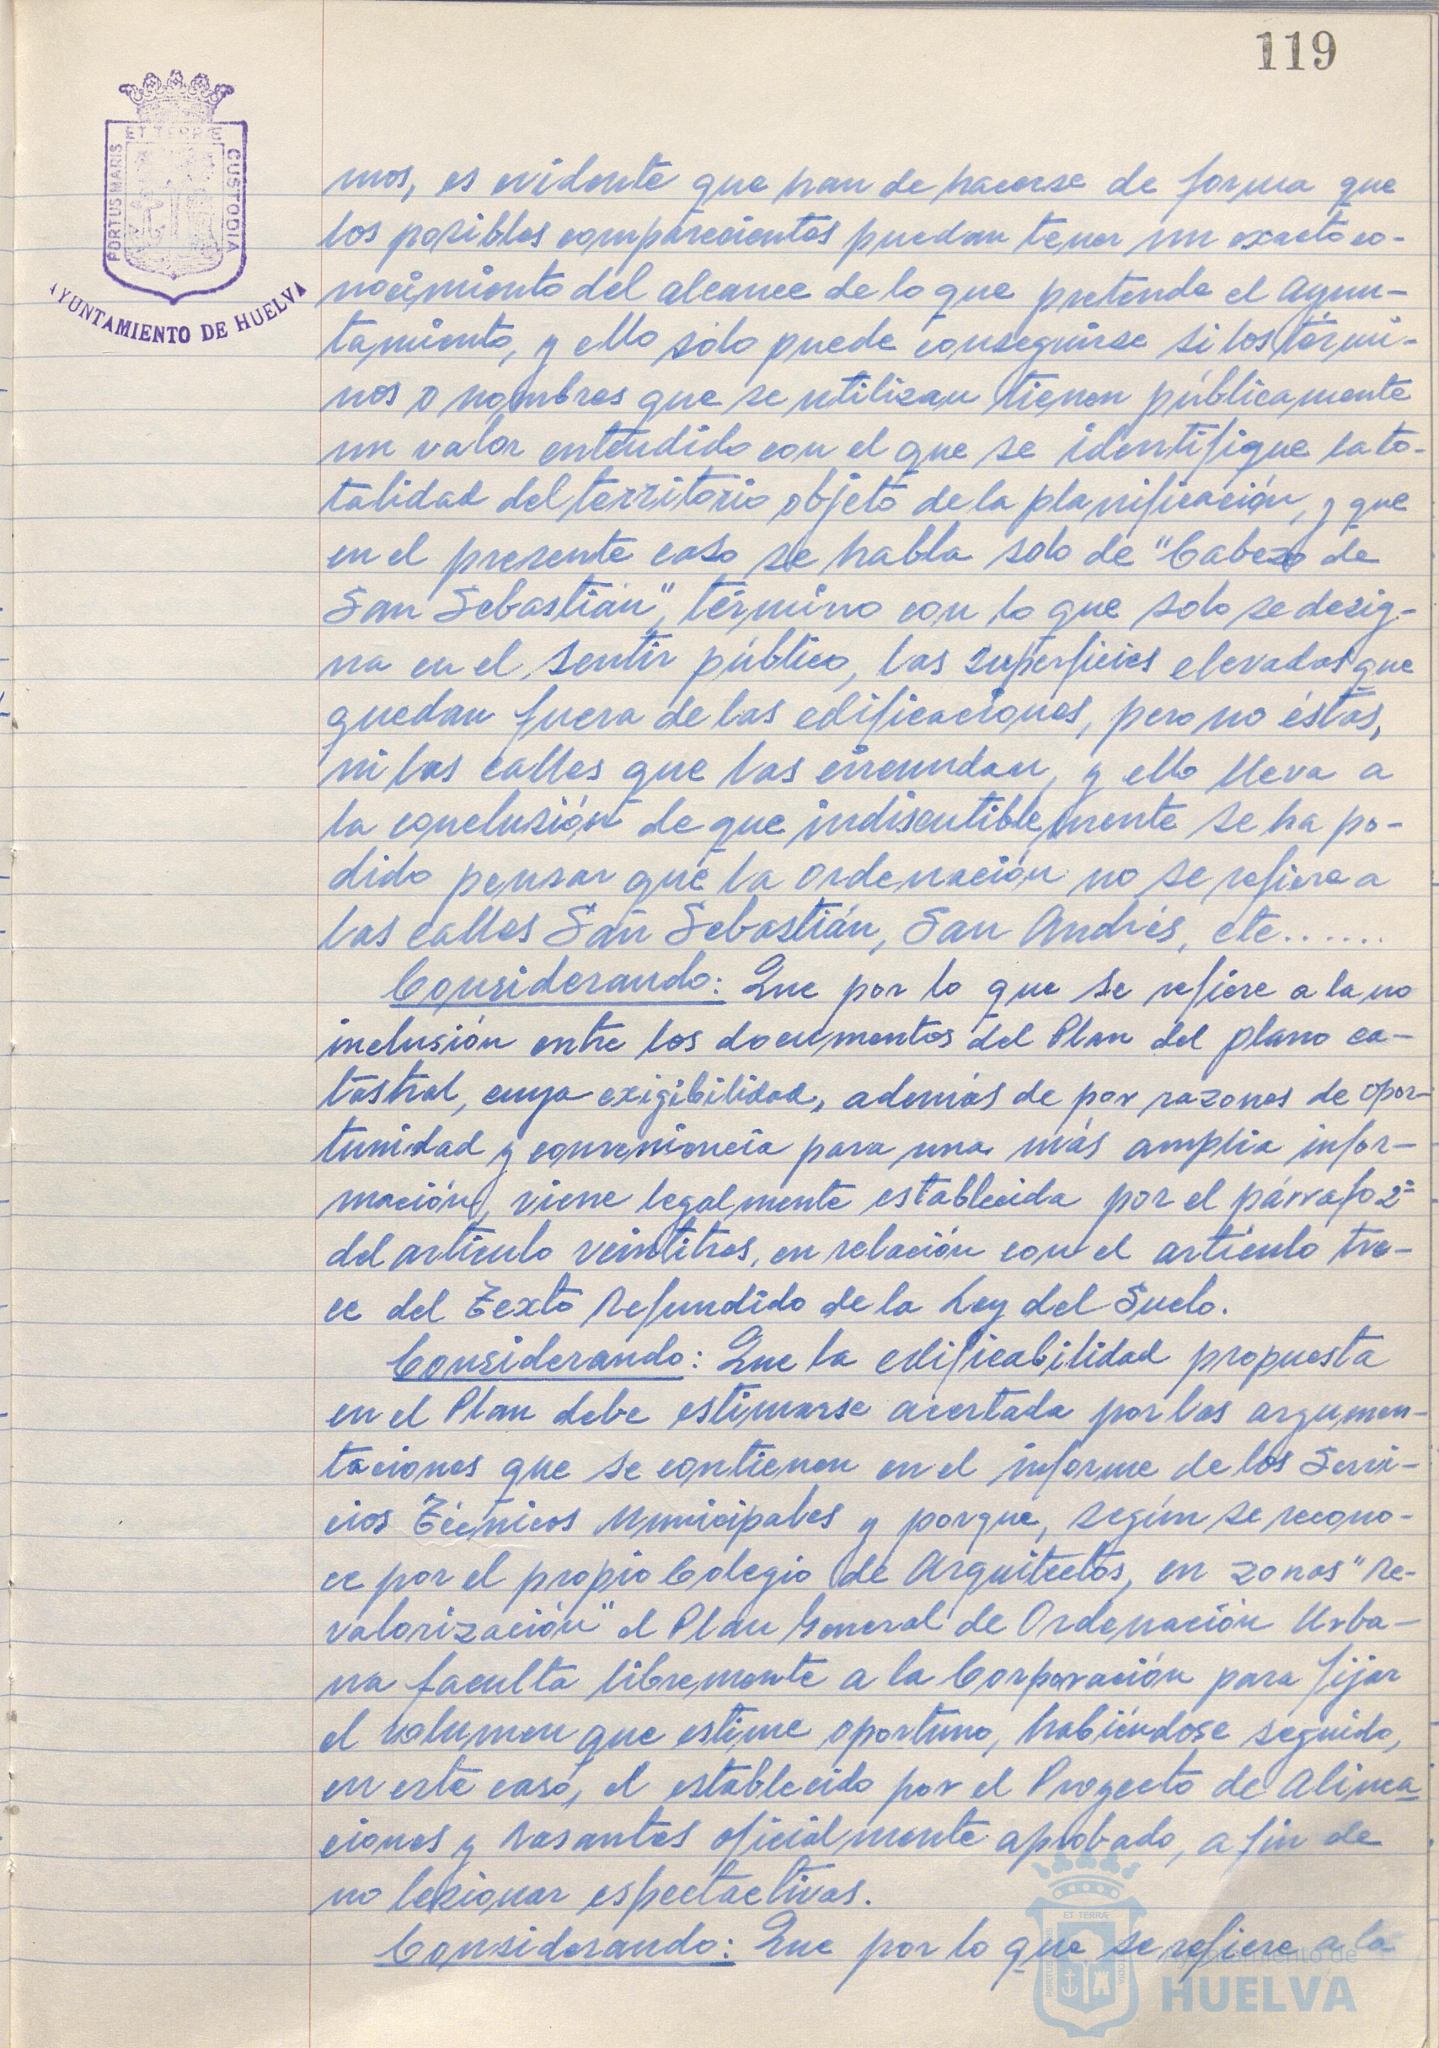 119
ET TERRÆ
PORTUS MARIS
CUSTODIA
AYUNTAMIENTO DE HUELVA
mos, es evidente que han de hacerse de forma que
los posibles comparecientes puedan tener un exacto co-
nocimiento del alcance de lo que pretende el Ayun-
tamiento, y ello sólo puede conseguirse si los térmi-
nos o nombres que se utilizan tienen públicamente
un valor entendido con el que se identifique la to-
talidad del territorio objeto de la planificación, y que
en el presente caso se habla solo de "Cabezo de
San Sebastián", término con lo que solo se desig-
na en el sentir público, las superficies elevadas que
quedan fuera de las edificaciones, pero no éstas,
ni las calles que las circundan, y ello lleva a
la conclusión de que indiscutiblemente se ha po-
dido pensar que la ordenación no se refiere a
las calles San Sebastián, San Andrés, etc......
Considerando: Que por lo que se refiere a la no
inclusión entre los documentos del Plan del plano ca-
tastral, cuya exigibilidad, además de por razones de opor-
tunidad y conveniencia para una más amplia infor-
mación, viene legalmente establecida por el párrafo 2º
del artículo veintitres, en relación con el artículo tre-
ce del Texto Refundido de la Ley del Suelo.
Considerando: Que la edificabilidad propuesta
en el Plan debe estimarse acertada por las argumen-
taciones que se contienen en el informe de los Servi-
cios Técnicos Municipales y porque, según se recono-
ce por el propio Colegio de Arquitectos, en zonas "Re-
valorización" el Plan General de Ordenación Urba-
na faculta libremente a la Corporación para fijar
el volumen que estime oportuno, habiéndose seguido,
en este caso, el establecido por el Proyecto de Alinea-
ciones y Rasantes oficialmente aprobado, a fin de
no lesionar espectactivas.
Considerando: Que por lo que se refiere a la
ET TERRÆ
Ayuntamiento de
HUELVA